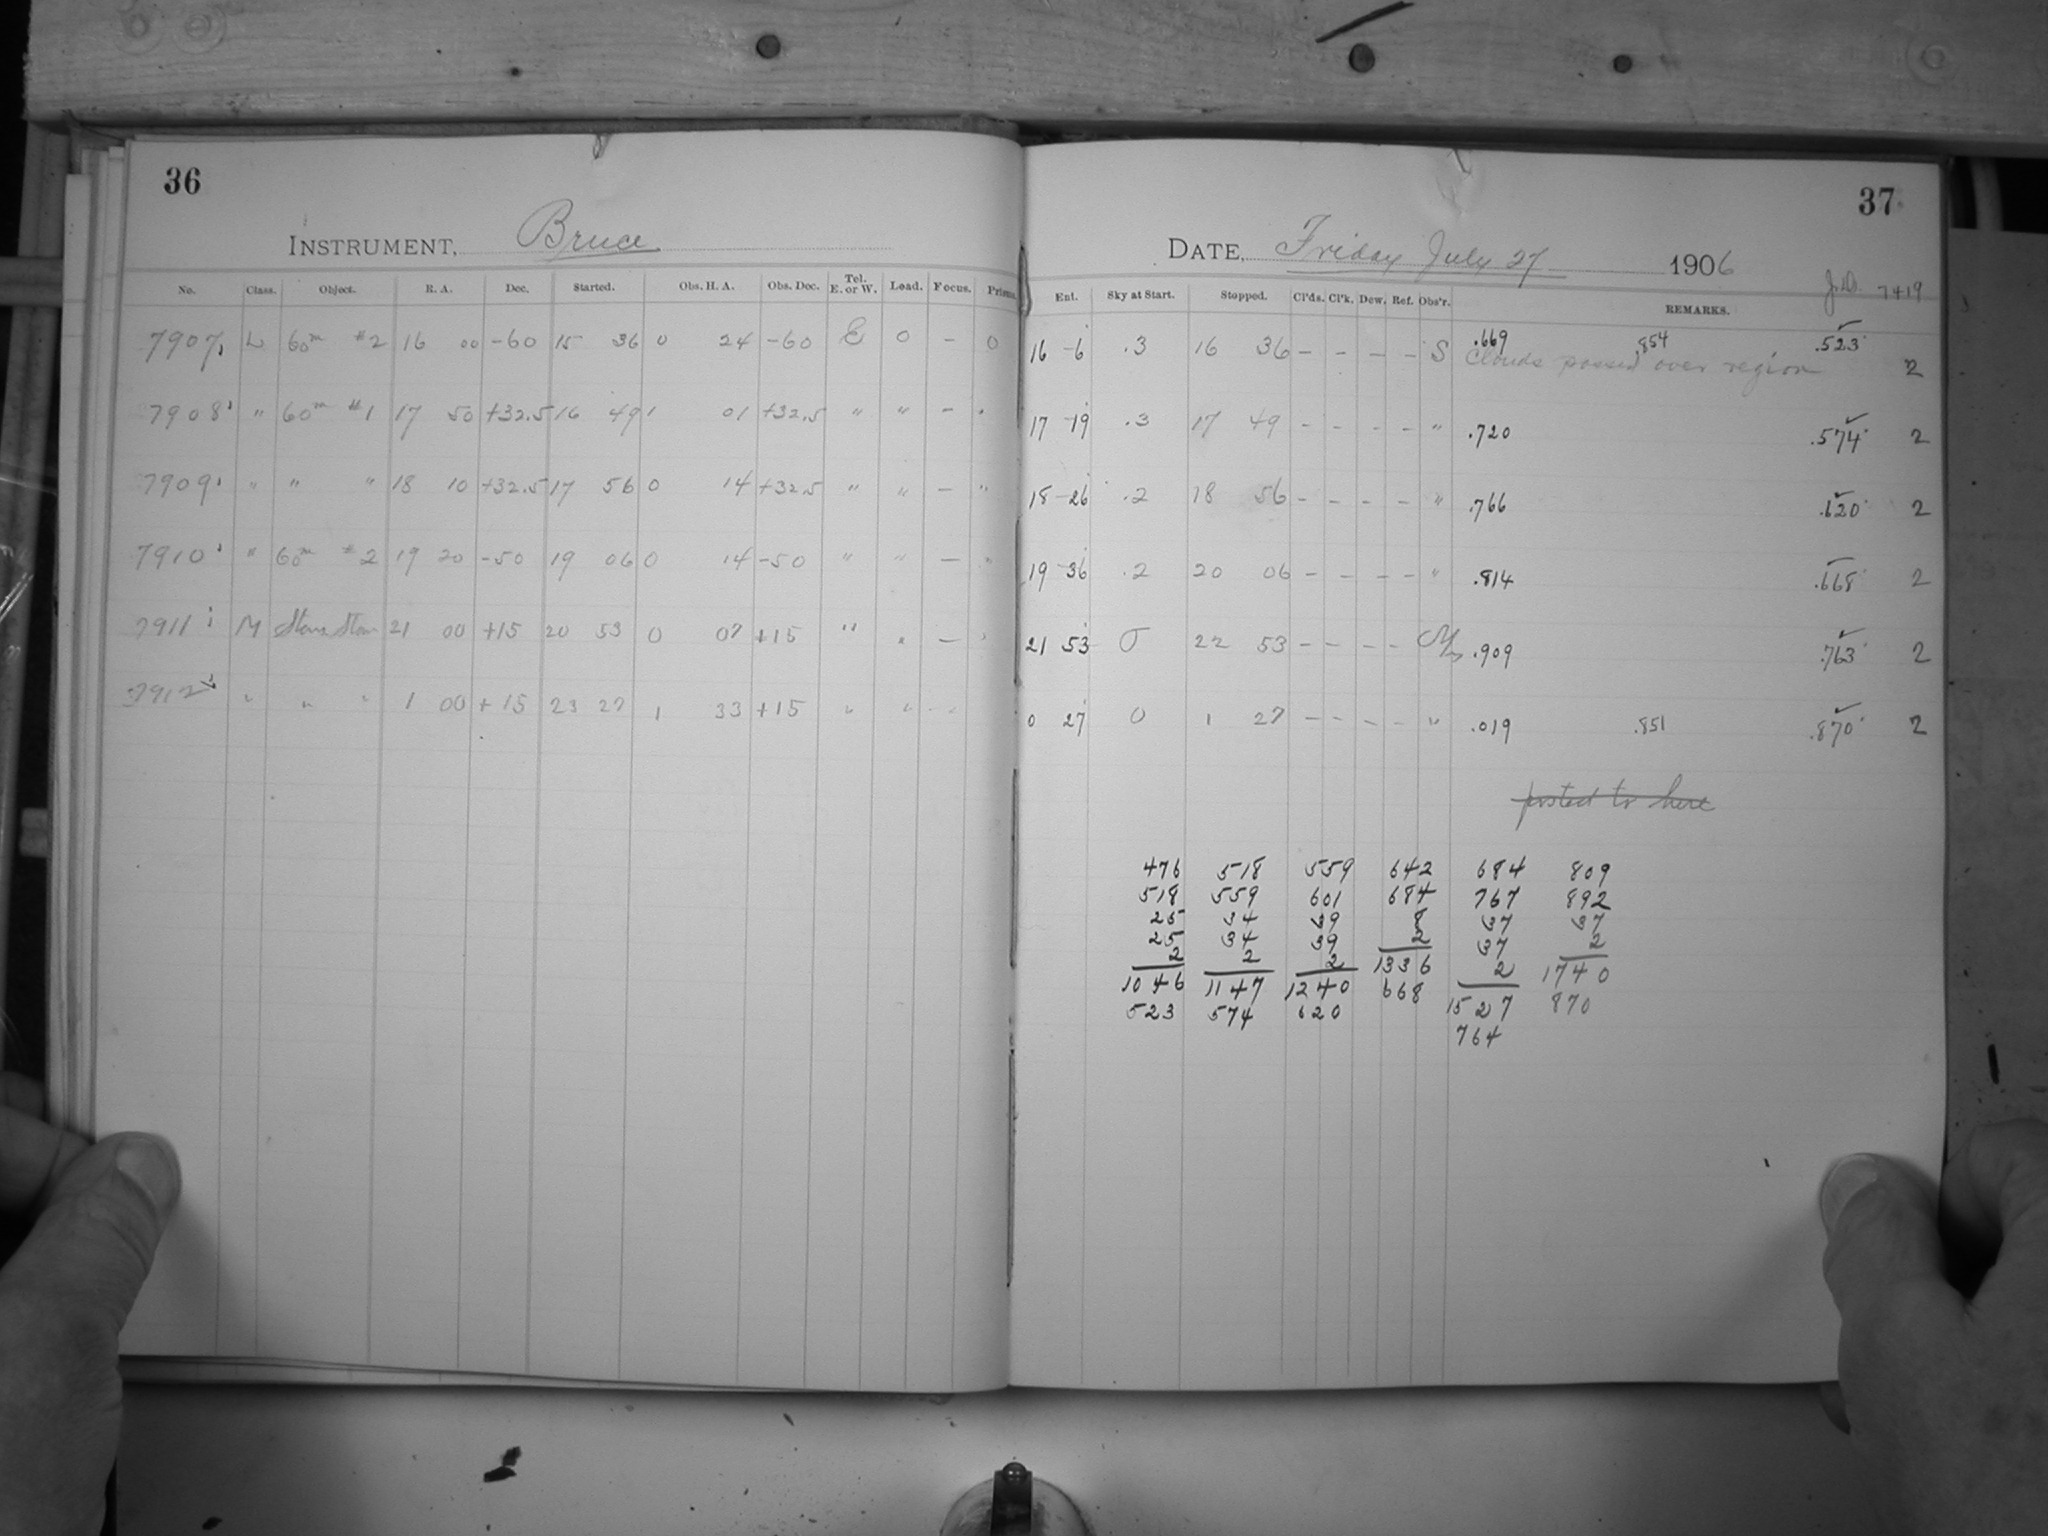 36
INSTRUMENT, Bruce
No. Class. Object. R. A. Dec. Started. Obs. H. A. Obs. Dec. Tel. E. or W. Load. Focus. Prism.
7907 L 60m #2 16 00 -60 15 36 0 24 -60 E 0 - 0
7908 " 60m #1 17 50 +32.5 16 49 1 01 +32.5 " " - "
7909 " " " 18 10 +32.5 17 56 0 14 +32.5 " " - "
7910 " 60m #2 19 20 -50 19 06 0 14 -50 " " - "
7911 M 21 00 +15 20 53 0 07 +15 " " - "
7912 " " " 1 00 +15 23 27 1 33 +15 " " - -
37
DATE, Friday July 27 1906
J.D. 7419
Ent. Sky at Start. Stopped. Cl'ds. Cl'k. Dew. Ref. Obs'r. REMARKS.
16 -6 .3 16 36 - - - - S .669 .854 .523
Clouds passed over region 2
17 -19 .3 17 49 - - - - " .720 .574 2
18 -26 .2 18 56 - - - - " .766 .620 2
19 -36 .2 20 06 - - - - " .814 .668 2
21 53 0 22 53 - - - - .909 .763 2
0 27 0 1 27 - - - - " .019 .851 .870 2
posted to here
476 518 559 642 684 809
518 559 601 684 767 892
25 34 39 8 37 37
25 34 39 2 37 2
2 2 2 1336 2 1740
1046 1147 1240 668 1527 870
523 574 620 764